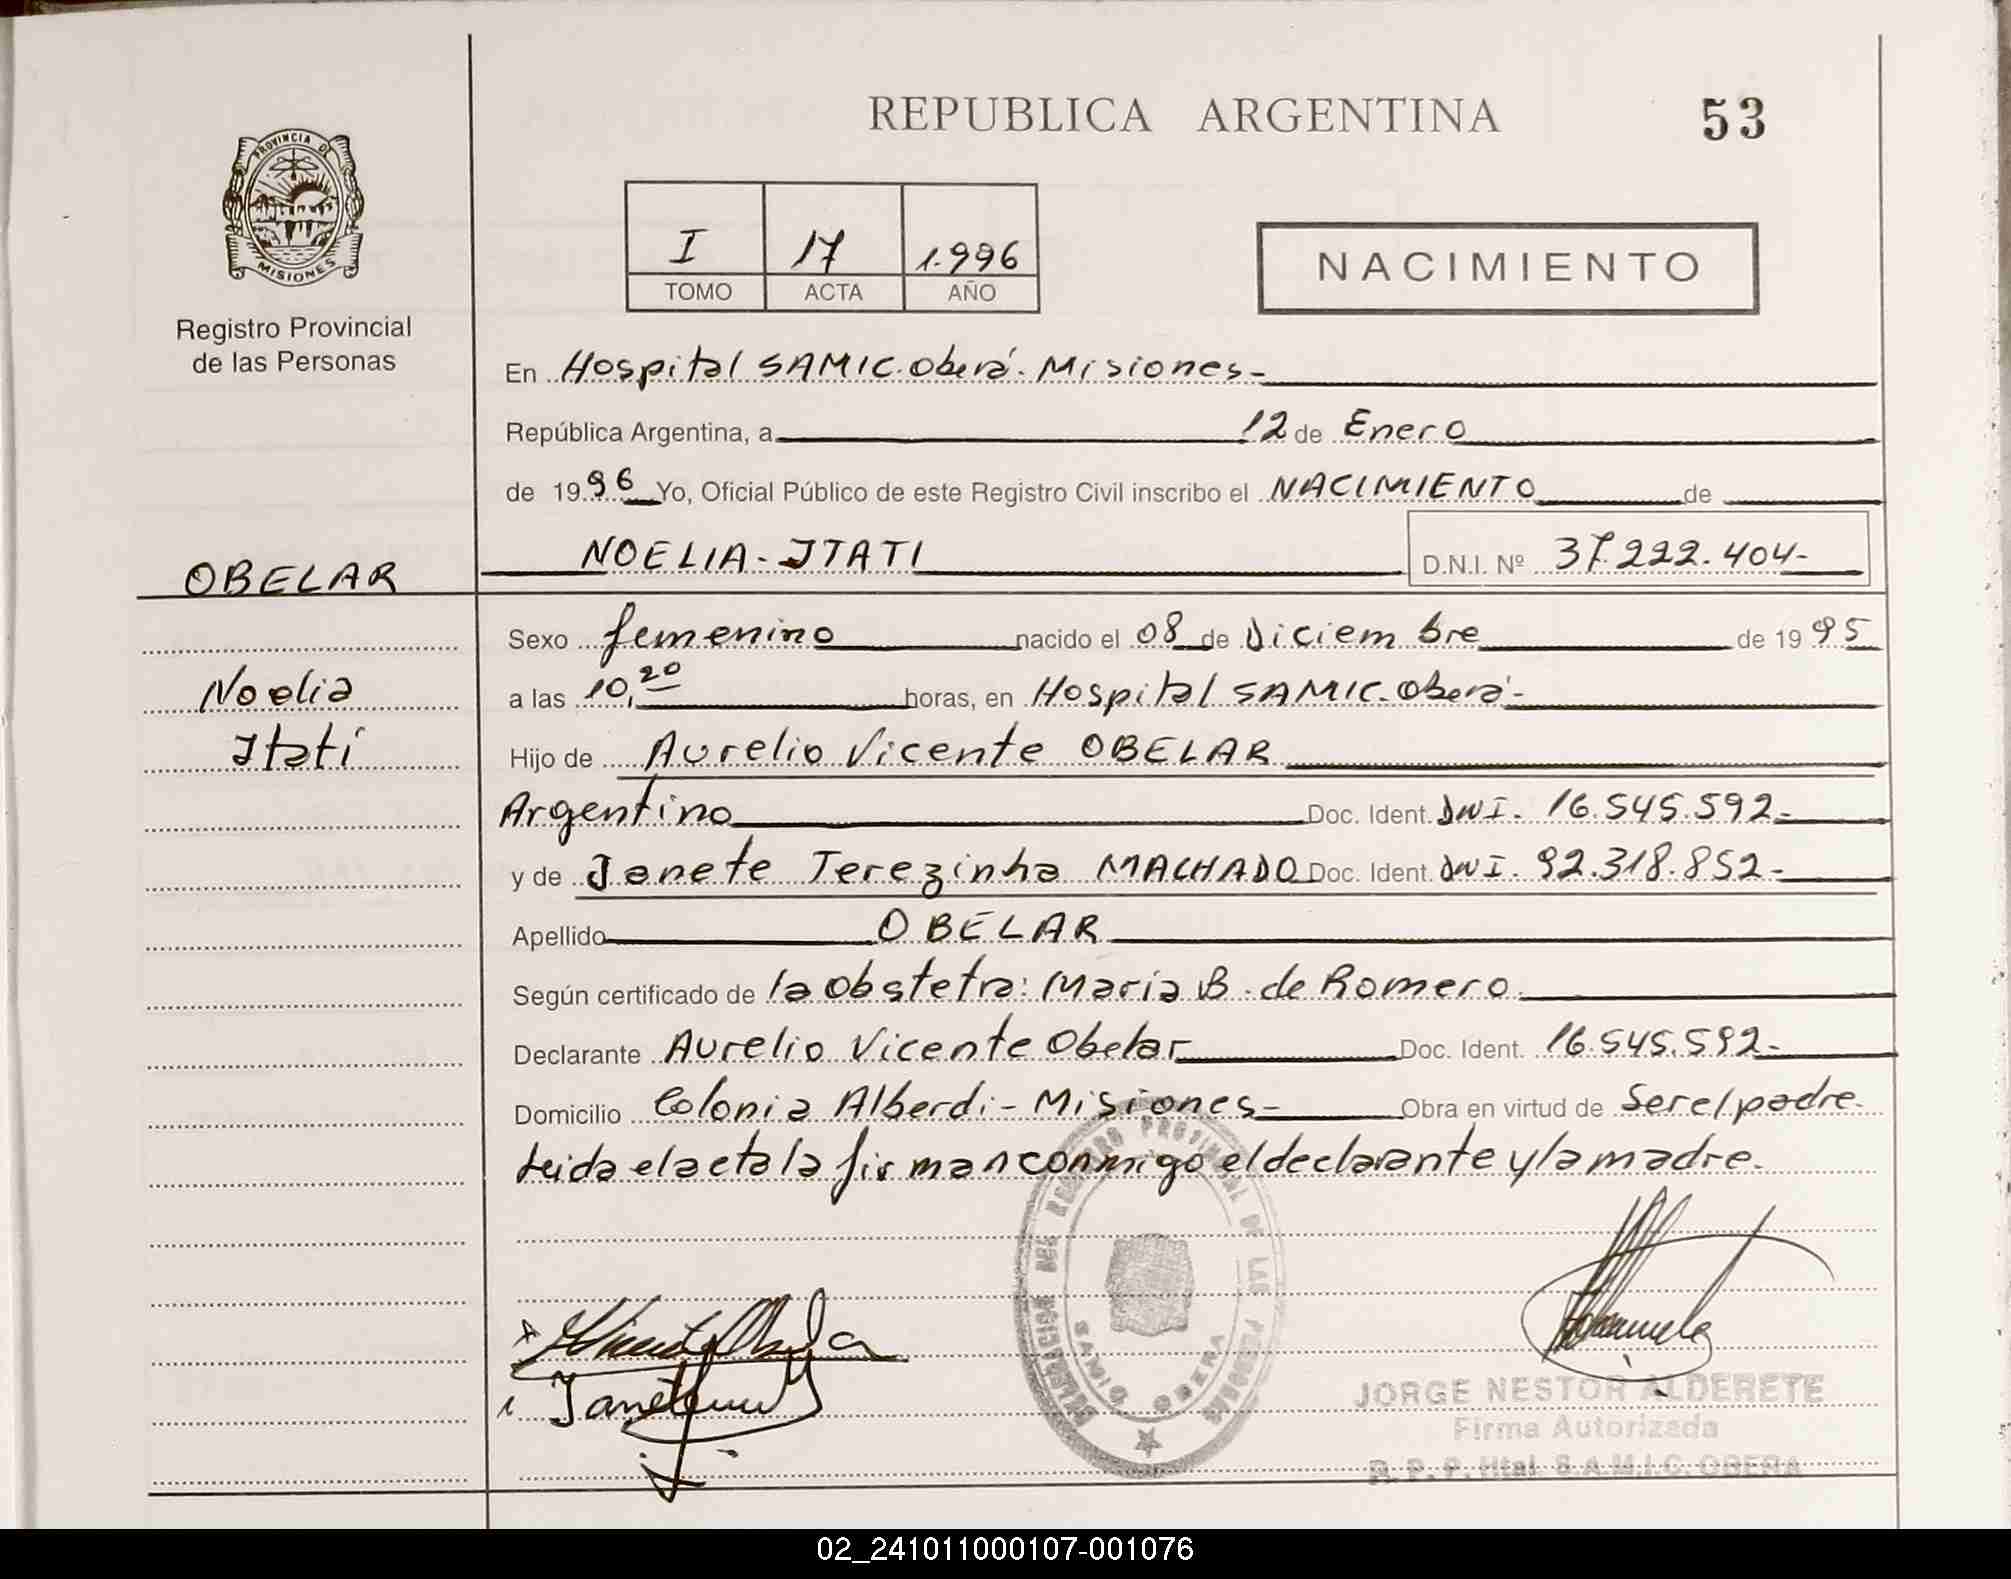 REPUBLICA ARGENTINA
53
PROVINCIA DE
MISIONES
Registro Provincial
de las Personas
I 17 1.996
TOMO ACTA AÑO
NACIMIENTO
En Hospital SAMIC. Oberá. Misiones-
República Argentina, a 12 de Enero
de 1996 Yo, Oficial Público de este Registro Civil inscribo el NACIMIENTO de
OBELAR
NOELIA-ITATI D.N.I. Nº 37.222.404-
Noelia
Itatí
Sexo femenino nacido el 08 de Diciembre de 1995
a las 10,20 horas, en Hospital SAMIC-Oberá-
Hijo de Aurelio Vicente OBELAR
Argentino Doc. Ident. DNI. 16.545.592-
y de Janete Terezinha MACHADO Doc. Ident. DNI. 92.318.852-
Apellido OBELAR
Según certificado de la Obstetra: María B. de Romero.
Declarante Aurelio Vicente Obelar Doc. Ident. 16.545.592-
Domicilio Colonia Alberdi- Misiones- Obra en virtud de Ser el padre.
Leida el acta la firman conmigo el declarante y la madre.
DELEGACION DEL REGISTRO PROVINCIAL DE LAS PERSONAS
SAMIC OBERA
JORGE NESTOR ALDERETE
Firma Autorizada
R. P. P. Htal. S.A.M.I.C. OBERA
02_241011000107-001076